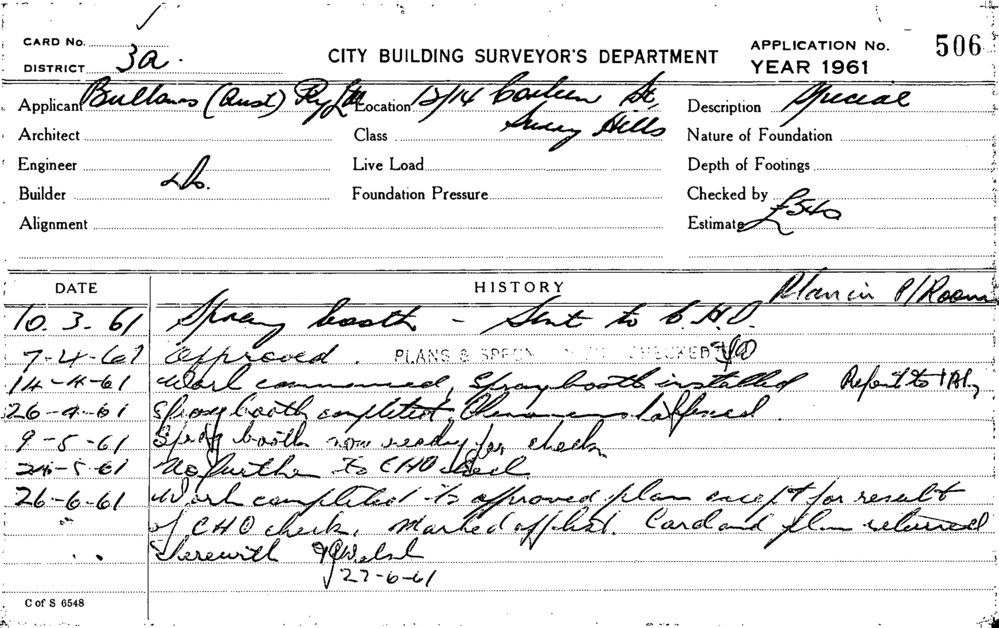 CARD No.
DISTRICT 3a.
CITY BUILDING SURVEYOR'S DEPARTMENT
APPLICATION No. 506
YEAR 1961
Applicant (Aust) Pty Ltd Location 12/14 St, Surry Hills Description Special
Architect Class Nature of Foundation
Engineer Live Load Depth of Footings
Builder Do. Foundation Pressure Checked by
Alignment Estimate £540
DATE HISTORY Plan in P/Room
10.3.61 Spray booth - Sent to C.H.O.
7-4-61 Approved. PLANS & SPECN CHECKED
14-4-61 Work commenced, Spray booth installed Report to
26-4-61 Spray booth completed
9-5-61 Spray booth now ready for check
24-5-61 No further to CHO
26-6-61 Work completed to approved plan except for result
of CHO check. Marked off list. Card and plan returned
herewith Walsh
27-6-61
C of S 6548